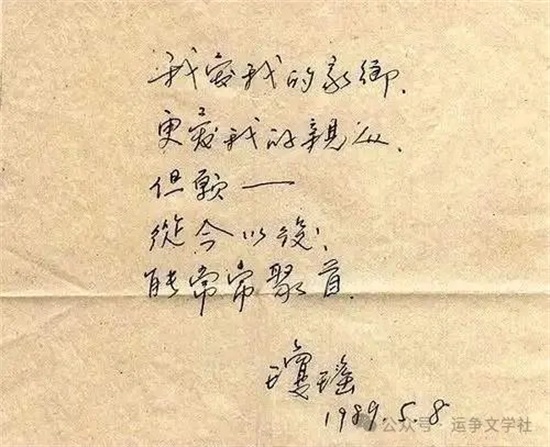 我爱我的家鄉.
更爱我的親人.
但願——
從今以後,
能常常聚首.
瓊瑤
1989.5.8
公众号·运争文学社